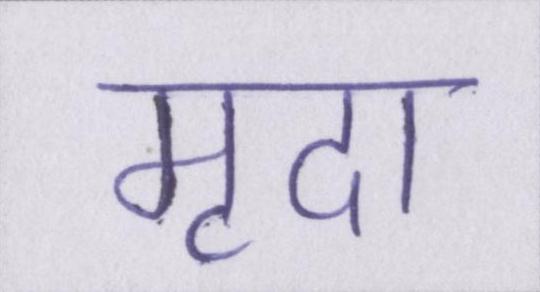 मृदा